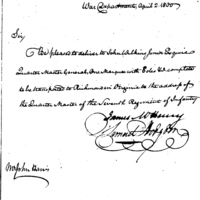 War Department, April 2. 1800
Sir,
Be pleased to deliver to John Wilkins Junior Esquire
Quarter Master General, One Marquee with Poles &c complete
to be transported to Richmond in Virginia to the address of
the Quarter Master of the Seventh Regiment of Infantry
James McHenry
Samuel Hodgdon
Mr John Harris